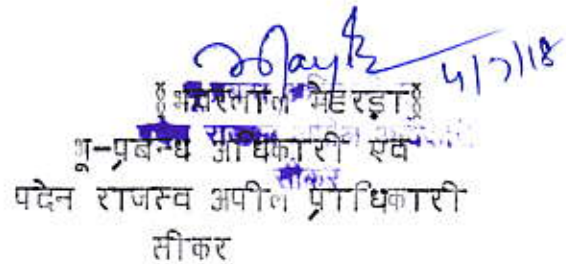 4/7/18
§भंवरलाल मेहरड़ा§
भू-प्रबन्ध अधिकारी एवं
पदेन राजस्व अपील प्राधिकारी
सीकर
सीकर